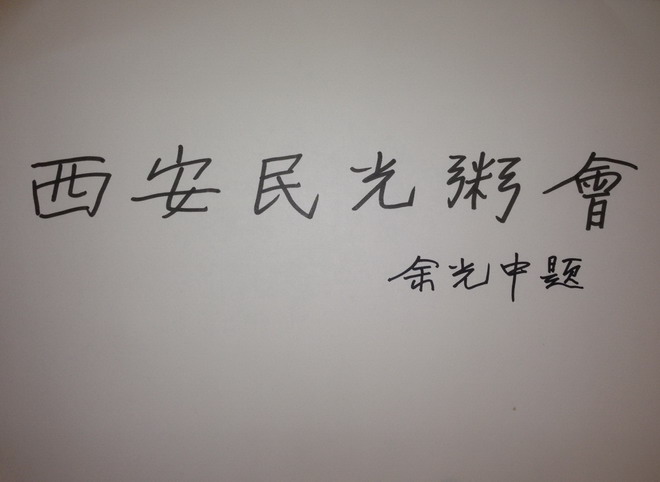 西安民光粥會
余光中题